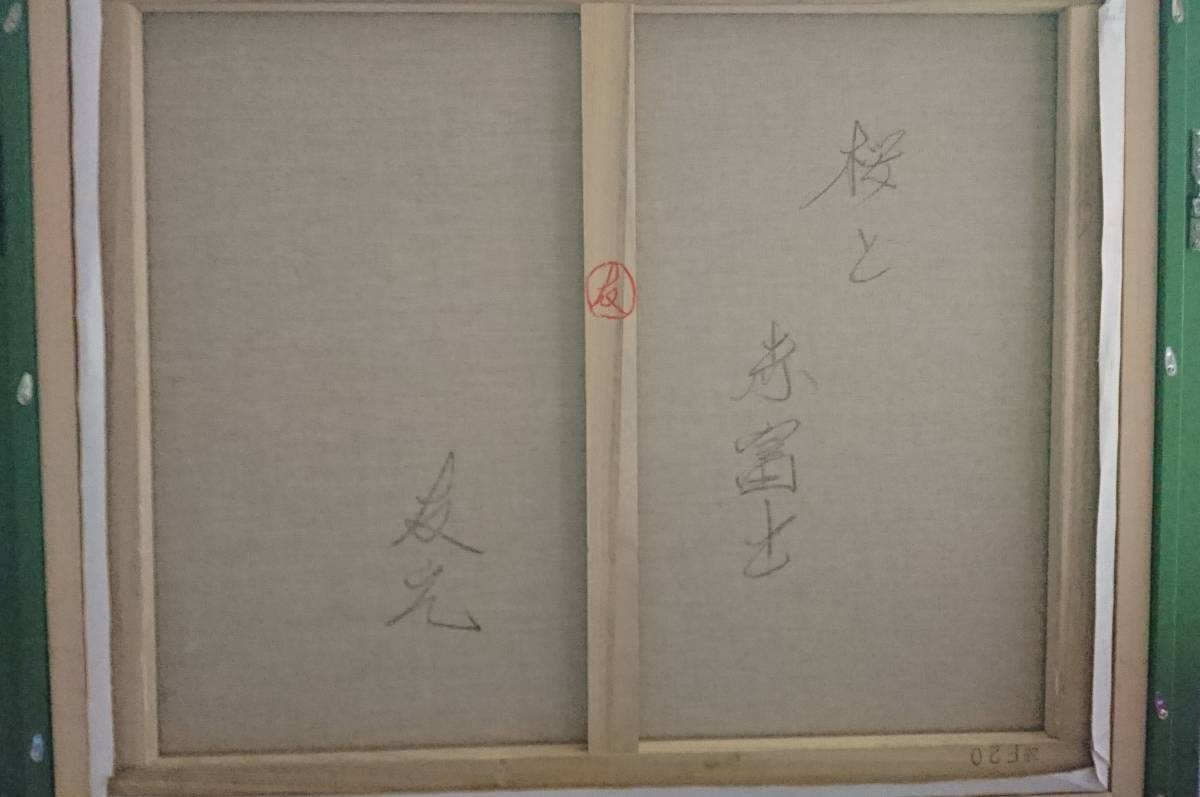 桜と
赤富士
友
友光
F20